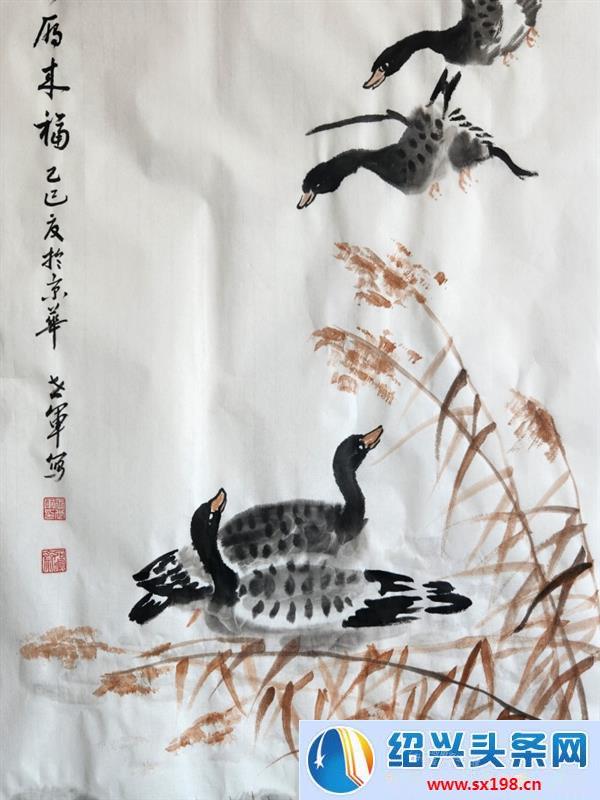 雁来福
乙巳夏於京華 世軍写
绍兴头条网
www.sx198.cn